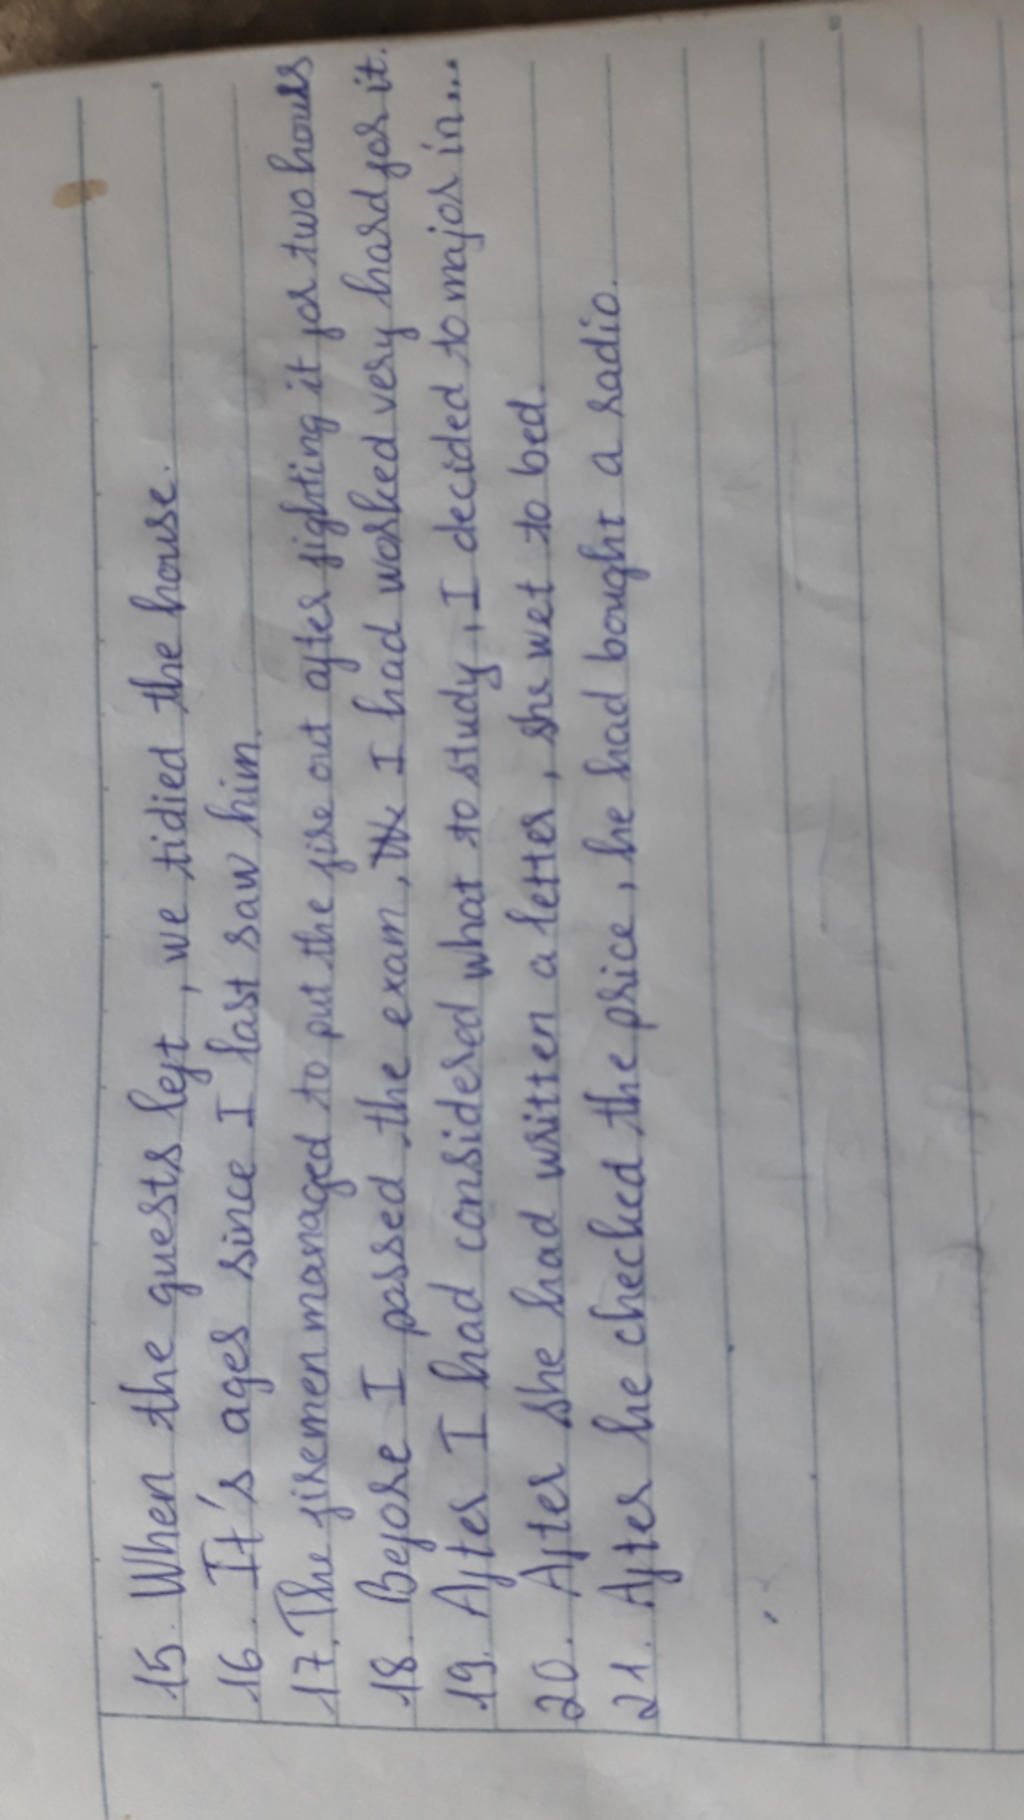 15. When the guests left, we tidied the house.
16. It's ages since I last saw him.
17. The firemen managed to put the fire out after fighting it for two hours
18. Before I passed the exam, the I had worked very hard for it.
19. After I had considered what to study, I decided to major in...
20. After she had written a letter, she wet to bed.
21. After he checked the price, he had bought a radio.